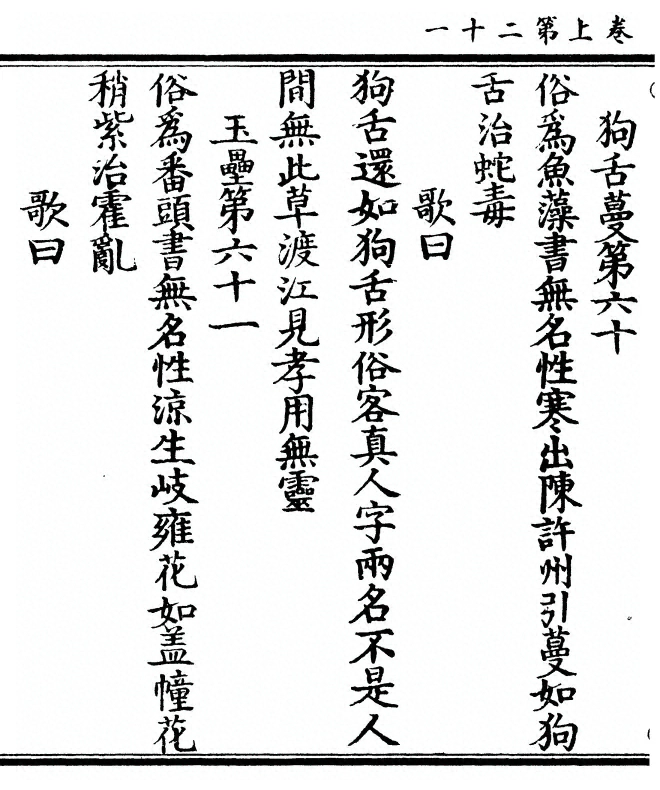 卷上第二十一
狗舌蔓第六十
俗爲魚藻書無名性寒出陳許州引蔓如狗
舌治蛇毒
歌曰
狗舌還如狗舌形俗客真人字兩名不是人
間無此草渡江見孝用無靈
玉壘第六十一
俗爲番頭書無名性涼生岐雍花如盖幢花
稍紫治霍亂
歌曰